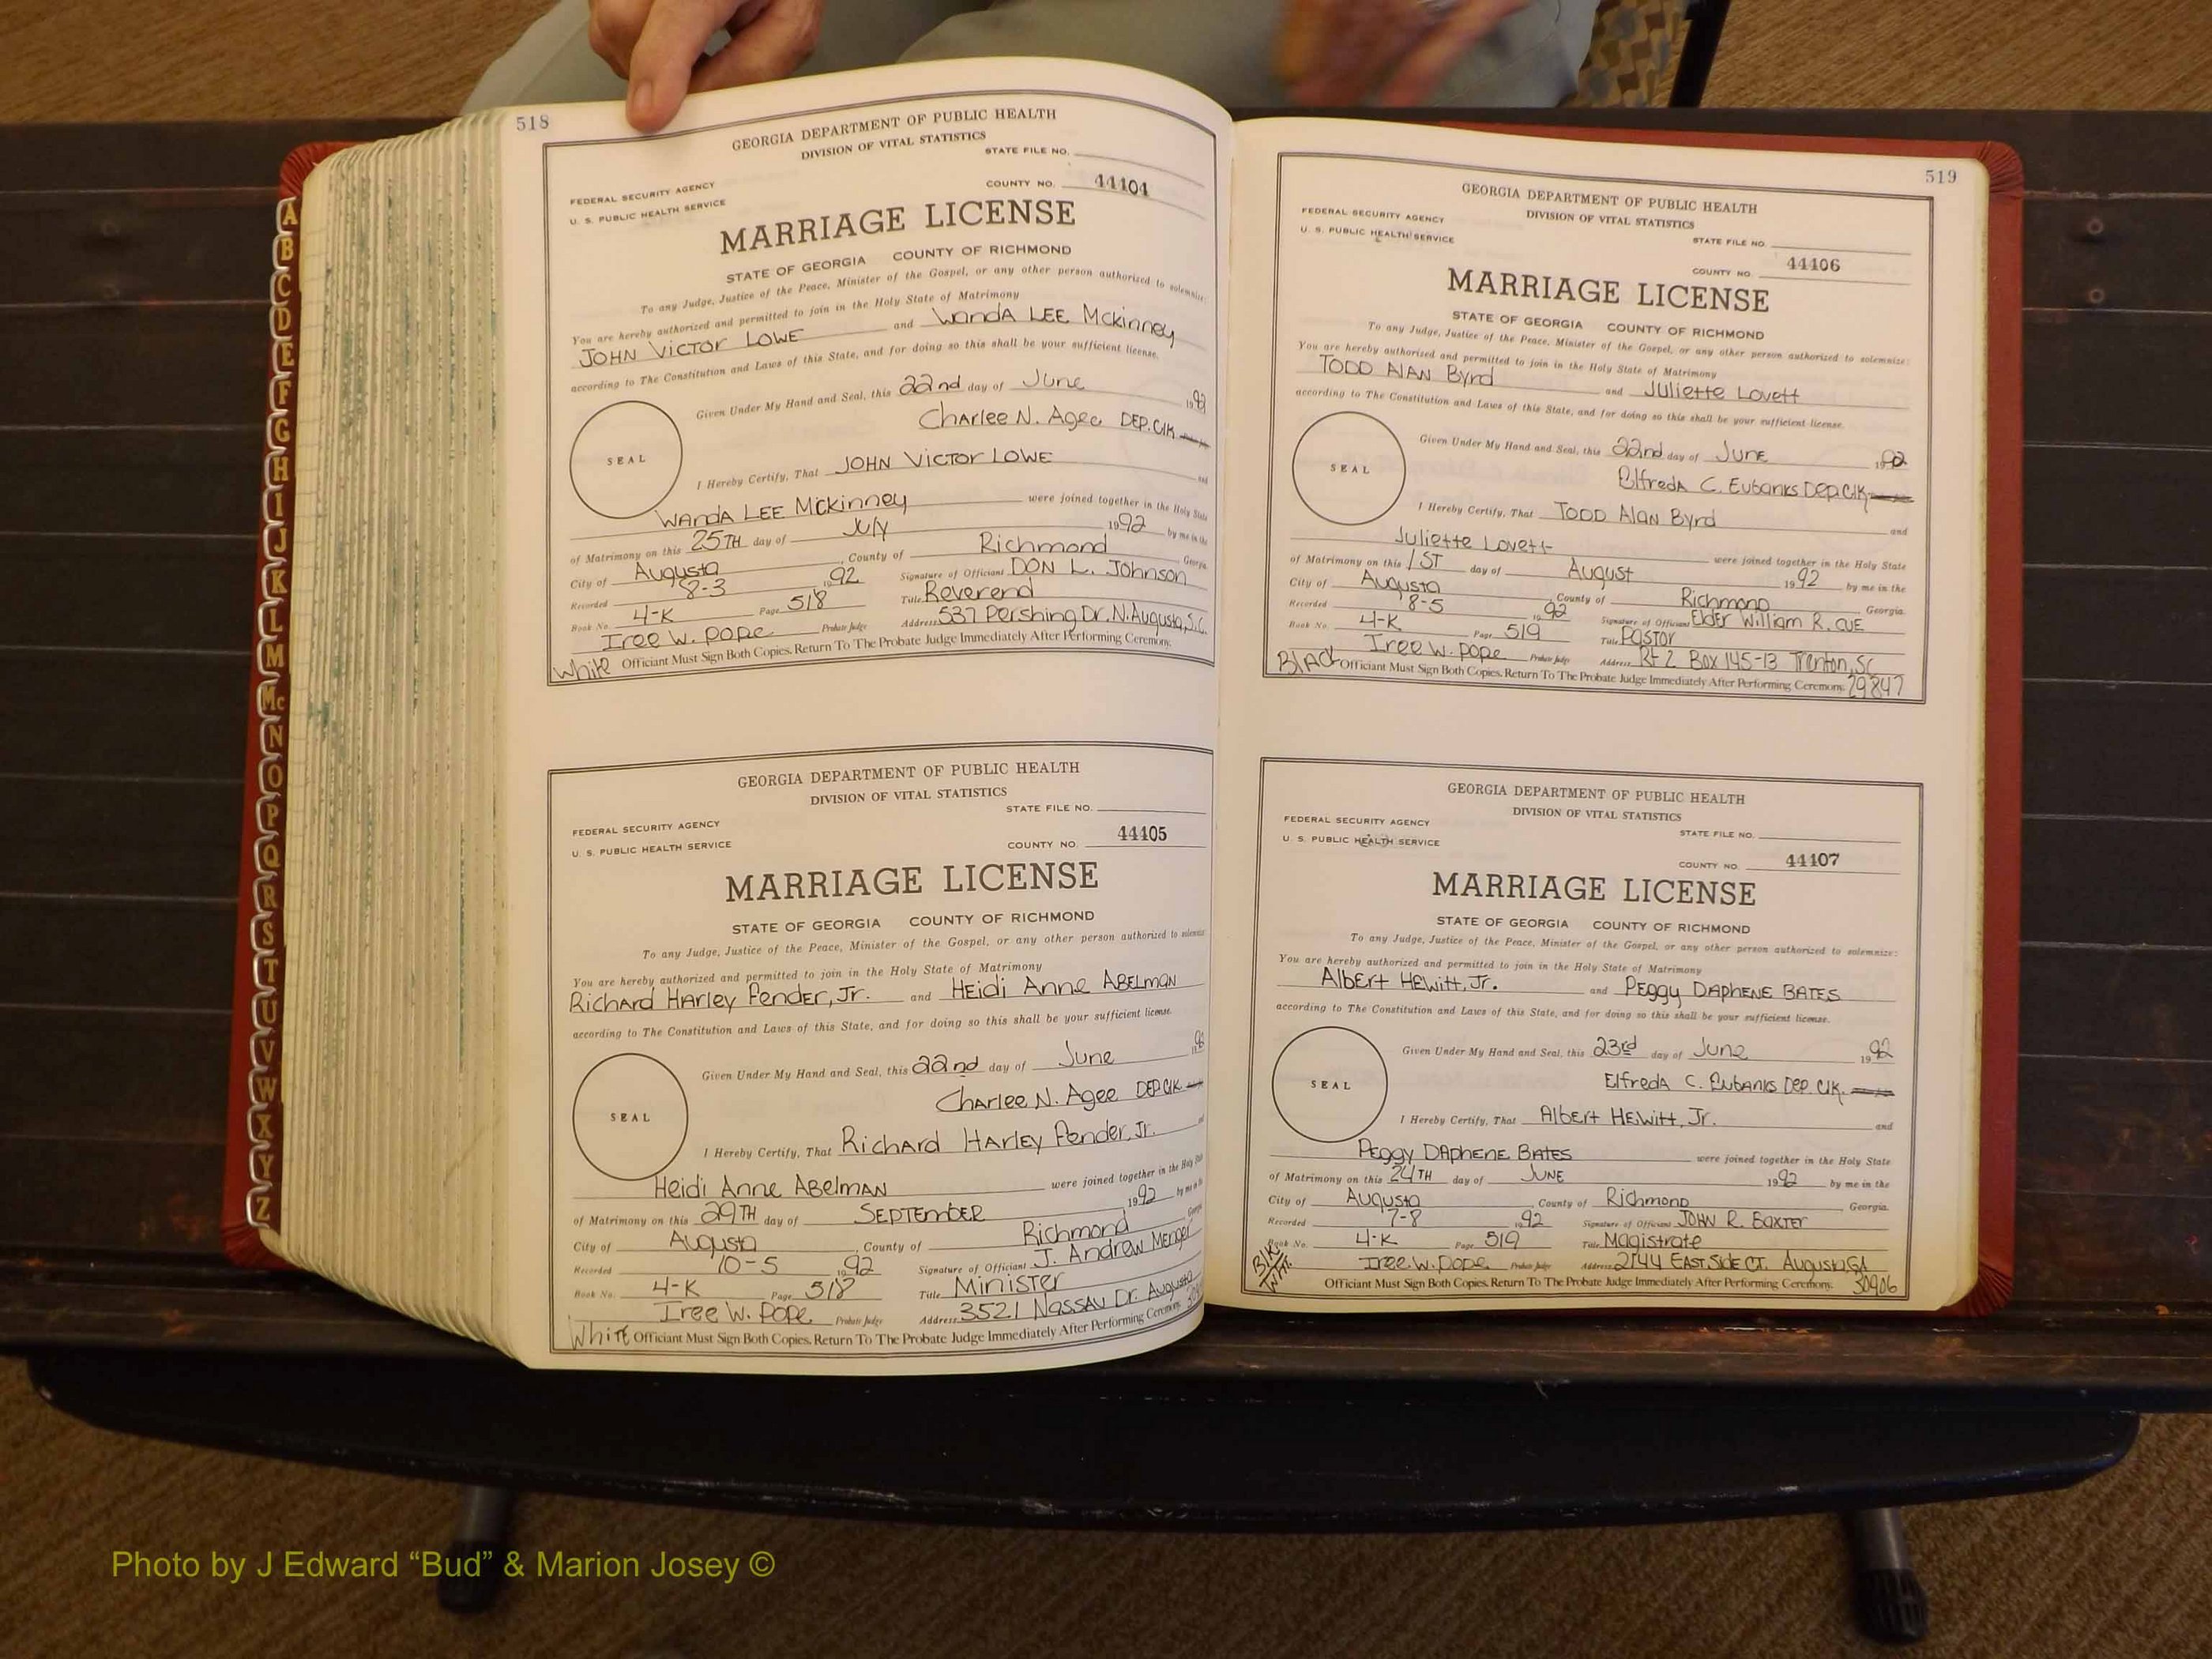 518
GEORGIA DEPARTMENT OF PUBLIC HEALTH
DIVISION OF VITAL STATISTICS
STATE FILE NO.
FEDERAL SECURITY AGENCY
COUNTY NO. 44104
U. S. PUBLIC HEALTH SERVICE
MARRIAGE LICENSE
STATE OF GEORGIA COUNTY OF RICHMOND
To any Judge, Justice of the Peace, Minister of the Gospel, or any other person authorized to solemnize:
You are hereby authorized and permitted to join in the Holy State of Matrimony
JOHN VICTOR LOWE and WANDA LEE McKinney
according to The Constitution and Laws of this State, and for doing so this shall be your sufficient license.
Given Under My Hand and Seal, this 22nd day of June 19
Charlee N. Agee DEP. Clk
SEAL
I Hereby Certify, That JOHN VICTOR LOWE and
WANDA LEE McKinney were joined together in the Holy State
of Matrimony on this 25TH day of July 1992 by me in the
City of Augusta, County of Richmond Georgia.
Recorded 8-3 1992 Signature of Officiant DON L. Johnson
Book No. 4-K Page 518 Title Reverend
Iree W. Pope Probate Judge Address 537 Pershing Dr. N. Augusta, S.C.
White Officiant Must Sign Both Copies. Return To The Probate Judge Immediately After Performing Ceremony.
GEORGIA DEPARTMENT OF PUBLIC HEALTH
DIVISION OF VITAL STATISTICS
STATE FILE NO.
FEDERAL SECURITY AGENCY
COUNTY NO. 44105
U. S. PUBLIC HEALTH SERVICE
MARRIAGE LICENSE
STATE OF GEORGIA COUNTY OF RICHMOND
To any Judge, Justice of the Peace, Minister of the Gospel, or any other person authorized to solemnize
You are hereby authorized and permitted to join in the Holy State of Matrimony
Richard Harley Fender, Jr. and HEidi Anne ABELMAN
according to The Constitution and Laws of this State, and for doing so this shall be your sufficient license.
Given Under My Hand and Seal, this 22nd day of June 19
Charlee N. Agee DEP. Clk.
SEAL
I Hereby Certify, That Richard HArley Fender, Jr. and
Heidi Anne ABelMAN were joined together in the Holy State
of Matrimony on this 29TH day of SEPTEMBER 1992 by me in the
City of Augusta, County of Richmond
Recorded 10-5 1992 Signature of Officiant J. Andrew Menger
Book No. 4-K Page 518 Title Minister
Iree W. Pope Probate Judge Address 3521 Nassau Dr. Augusta
White Officiant Must Sign Both Copies. Return To The Probate Judge Immediately After Performing Ceremony.
519
GEORGIA DEPARTMENT OF PUBLIC HEALTH
DIVISION OF VITAL STATISTICS
FEDERAL SECURITY AGENCY
STATE FILE NO.
U. S. PUBLIC HEALTH SERVICE
COUNTY NO. 44106
MARRIAGE LICENSE
STATE OF GEORGIA COUNTY OF RICHMOND
To any Judge, Justice of the Peace, Minister of the Gospel, or any other person authorized to solemnize:
You are hereby authorized and permitted to join in the Holy State of Matrimony
TODD AlAN Byrd and Juliette Lovett
according to The Constitution and Laws of this State, and for doing so this shall be your sufficient license.
Given Under My Hand and Seal, this 22nd day of June 1992
Elfreda C. Eubanks Dep. Clk
SEAL
I Hereby Certify, That TODD Alan Byrd and
Juliette Lovett were joined together in the Holy State
of Matrimony on this 1ST day of August 1992 by me in the
City of Augusta, County of Richmond Georgia.
Recorded 8-5 1992 Signature of Officiant Elder William R. CUE
Book No. 4-K Page 519 Title Pastor
Iree W. Pope Probate Judge Address Rt 2 Box 145-13 Trenton, SC
BLACK Officiant Must Sign Both Copies. Return To The Probate Judge Immediately After Performing Ceremony. 29847
GEORGIA DEPARTMENT OF PUBLIC HEALTH
DIVISION OF VITAL STATISTICS
FEDERAL SECURITY AGENCY
STATE FILE NO.
U. S. PUBLIC HEALTH SERVICE
COUNTY NO. 44107
MARRIAGE LICENSE
STATE OF GEORGIA COUNTY OF RICHMOND
To any Judge, Justice of the Peace, Minister of the Gospel, or any other person authorized to solemnize:
You are hereby authorized and permitted to join in the Holy State of Matrimony
AlbErt HEwitt, Jr. and PEggy DAphENE BATES
according to The Constitution and Laws of this State, and for doing so this shall be your sufficient license.
Given Under My Hand and Seal, this 23rd day of June 1992
ElfredA C. Eubanks Dep. Clk.
SEAL
I Hereby Certify, That AlbErt HEwitt, Jr. and
PEggy DAphENE BATES were joined together in the Holy State
of Matrimony on this 24TH day of JUNE 1992 by me in the
City of Augusta, County of Richmond Georgia.
Recorded 7-8 1992 Signature of Officiant JOHN R. BAXTER
Book No. 4-K Page 519 Title Magistrate
Iree W. Pope Probate Judge Address 2144 EAST Side CT. Augusta, GA
Blk/Wh. Officiant Must Sign Both Copies. Return To The Probate Judge Immediately After Performing Ceremony. 30906
A
B
C
D
E
F
G
H
I
J
K
L
M
Mc
N
O
P
Q
R
S
T
U
V
W
X
Y
Z
Photo by J Edward “Bud” & Marion Josey ©